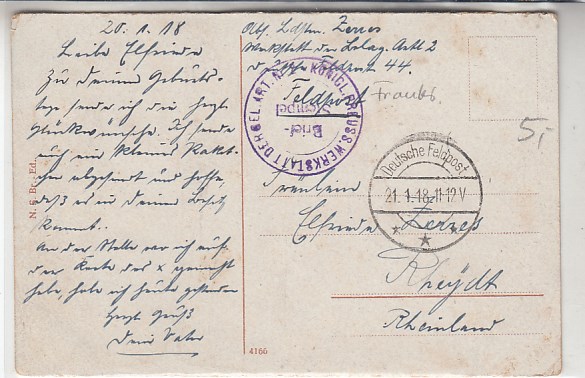 20.1.18
Liebe Elfriede
Zu Deinem Geburts-
tage sende ich die herzl
Glückwünsche. Ich sende
auch ein kleines Paket-
chen abgesandt und hoffe,
daß es in Deinen Besitz
kommt.
An der Stelle wo ich auf
der Karte das x gemacht
habe, habe ich heute gestanden
Herzl Gruß
Dein Vater
N. G. Br., Ed.
4166
Ldstm. Zerres
Werkstatt der Belag. Artl 2
Feldpost 44.
Feldpost
KÖNIGL. PREUSS. WERKSTATT DER BEL. ART. N° 2
Brief-
Stempel
5,-
Deutsche Feldpost
21.1.18.11-12V
Fräulein
Elfriede Zerres
Rheydt
Rheinland